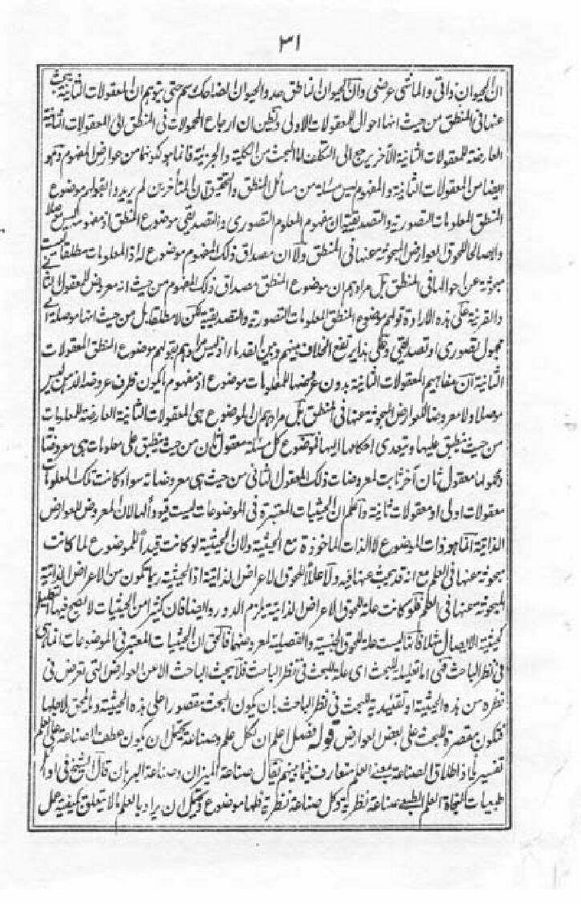 ٣١
ان الحيوان ذاتي والماشي عرضي وان الحيوان الناطق حد والحيوان الضاحك رسم حتى يتوهم ان المعقولات الثانية يبحث
عنها في المنطق من حيث انها احوال للمعقولات الاولى وتظن ان ارجاع المحمولات في المنطق الى المعقولات الثانية
العارضة للمعقولات الثانية الأخر يرجع الى التكلف اما البحث من الكلية والجزئية فانما هو كونهما من عوارض المفهوم وهو
ايضا من المعقولات الثانية والمفهوم ليس مسئلة من مسائل المنطق والتحقيق ان المتأخرين لم يريدوا بقولهم موضوع
المنطق المعلومات التصورية والتصديقية ان مفهوم المعلوم التصوري والتصديقي موضوع المنطق اذ مفهومه ليس موصلا
ولا صالحا للحوق العوارض المبحوثة عنها في المنطق ولا ان مصداق ذلك المفهوم موضوع له اذ المعلومات مطلقا ليست
مبحوثة عن احوالها في المنطق بل مرادهم ان موضوع المنطق مصداق ذلك المفهوم من حيث انه معروض للمعقول الثاني
والقرينة على هذه الارادة قولهم موضوع المنطق المعلومات التصورية والتصديقية لكن لا مطلقا بل من حيث انها موصلة الى
مجهول تصوري او تصديقي وعلى هذا يرتفع الخلاف بينهم وبين القدماء اذ ليس مرادهم بقولهم موضوع المنطق المعقولات
الثانية ان مفاهيم المعقولات الثانية بدون عروضها للمعلومات موضوع اذ مفهوم ما يكون ظرف عروضه الذهن ليس
موصلا ولا معروضا للعوارض المبحوثة عنها في المنطق بل مرادهم ان الموضوع هي المعقولات الثانية العارضة للمعلومات
من حيث ينطبق عليها ويتعدى احكامها اليها فموضوع كل مسئلة معقول ثان من حيث ينطبق على معلومات هي معروضاته
ومحمولها معقول ثان آخر ثابت لمعروضات ذلك المعقول الثاني من حيث هي معروضاته سواء كانت تلك المعلومات
معقولات اولى او معقولات ثانية واعلم ان الحيثيات المعتبرة في الموضوعات ليست قيودا لها لان المعروض للعوارض
الذاتية انما هو ذات الموضوع لا الذات الماخوذة مع الحيثية ولان الحيثية لو كانت قيدا للموضوع لما كانت
مبحوثة عنها في العلم مع انه قد يبحث عنها فيه ولا عللا للحوق الاعراض الذاتية اذ الحيثية ربما تكون من الاعراض الذاتية
المبحوثة عنها في العلم فلو كانت علة للحوق الاعراض الذاتية يلزم الدور وايضا فان كثيرا من الحيثيات لا يصح فيها التعليل
كحيثية الايصال مثلا فانها ليست علة للحوق الجنسية والفصلية لمعروضهما فالحق ان الحيثيات المعتبرة في الموضوعات انما هي
في نظر الباحث فهي اما تعليلية للبحث اي علة للبحث في نظر الباحث فلا يبحث الباحث الا من العوارض التي تعرض في
نظره من هذه الحيثية او تقييدية للبحث في نظر الباحث بان يكون البحث مقصورا على هذه الحيثية وما يلحق لاجلها
فتكون مقصرة للبحث على بعض العوارض قوله فصل اعلم ان لكل علم وصناعة يحتمل ان يكون عطف الصناعة على العلم
تفسيريا اذ اطلاق الصناعة بمعنى العلم متعارف فيما بينهم يقال صناعة الميزان وصناعة البرهان قال الشيخ في اول
طبيعيات النجاة العلم الطبيعي صناعة نظرية وكل صناعة نظرية فلها موضوع ويحتمل ان يراد بالعلم ما لا يتعلق بكيفية عمل